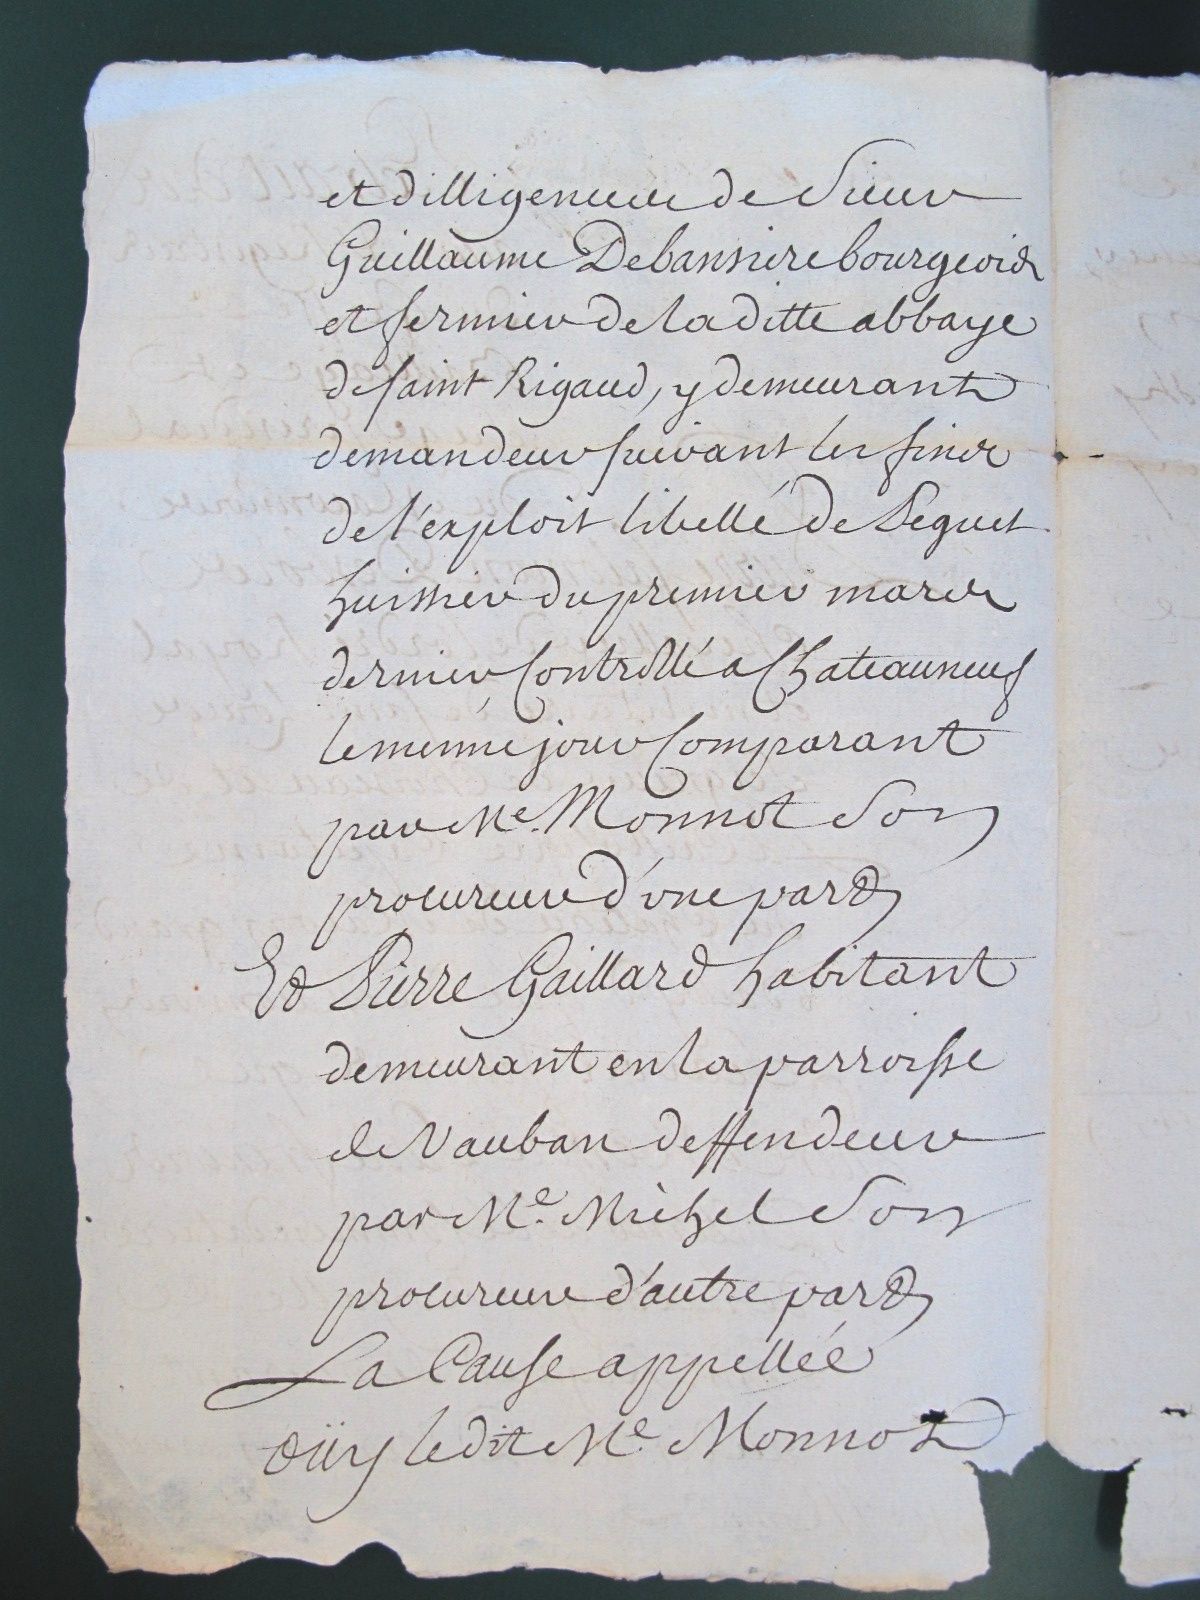 et dilligences de Sieur
Guillaume Debansiere bourgeois
et fermier de la ditte abbaye
de saint Rigaud, y demeurant
demandeur suivant les fins
de l'exploit libellé de Peguet
huissier du premier mars
dernier Controllé a Chateauneuf
le meme jour Comparant
par Me. Monnot Son
procureur d'une part
Et Pierre Gaillard habitant
demeurant en la parroisse
de Vauban deffendeur
par Me. Michel Son
procureur d'autre part
La Cause appellée
oüy ledit Me. Monnot